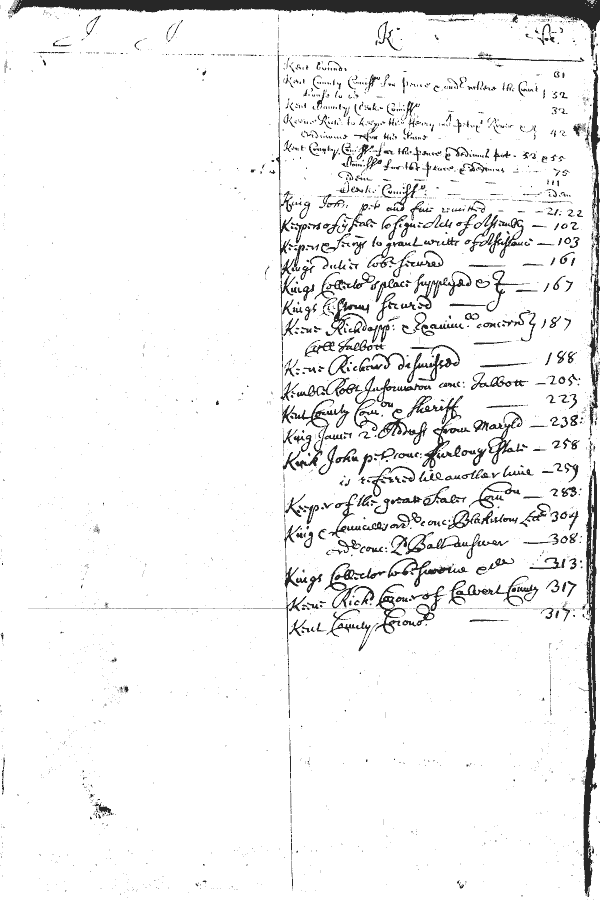 J J K fo:
Kent bounds — 31
Kent County Comiss^rs for peace & where the Court
to be 52
Kent County Comiss^rs 32
Keene Rich^d to keepe the ferry Putux^t River &
for the same 42
Kent County, Comiss^rs for the peace & dedimus pot — 53 & 55
Comiss^rs for the peace & dedimus — 75
idem — 111
Comiss^rs: — idem
King John: pet and fine remitted — 21: 22
Keepers of y^e seale to signe Acts of Assembly — 102
Keepers & to grant writts of Assistance — 103
Kings duties to be secured — 161
Kings Collecto^rs place supplyed &
— 167
Kings Customs secured —
Keene Rich^d app^r: & Examin^n: concern^g } 187
Coll Talbott —
Keene Richard dismissed — 188
Kemble Rob^t Information conc: Talbott — 205:
Kent County Com^on & Sheriff — 223
King James 2^d Address from Maryl^d — 238:
Kirk John pet^n conc: Furlong Estate — 258
is referred till another time — 259
Keeper of the great Seales Com^on — 283:
King & Councills ord^r conc: Blakistons Lre 304
ord^r conc: L^d Balt answer — 308:
Kings Collector to be sworne — 313:
Keene Rich^d Coroner of Calvert County 317
Kent County Corono^r — 317: